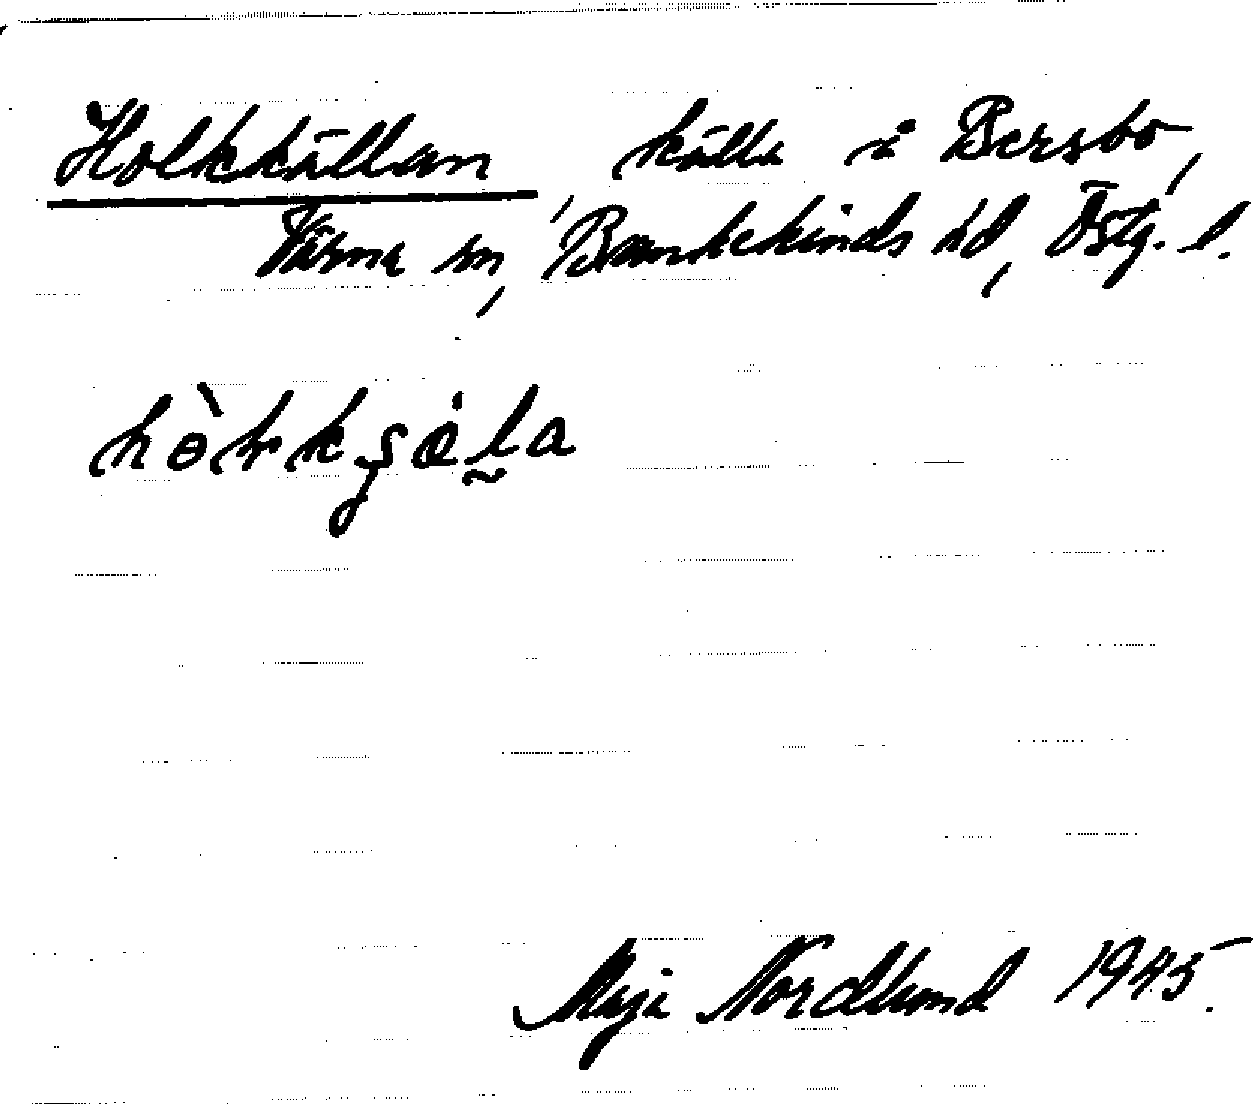 Holkkällan källa i Bersbo,
Värna sn, Bankekinds hd, Östg. l.
Maja Nordlund 1945.